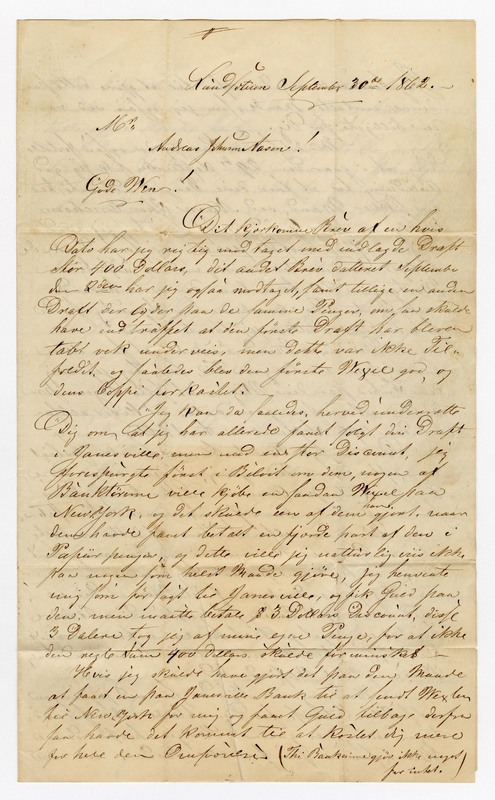 September 30te 1862.
Mr.
Andreas Johannesen!
Gode Ven!
Dit kjerkomne Brev af en hvis
Dato har jeg rigtig modtaget med indlagde Draft
stor 400 Dollars, dit andet Brev dateret September
den har jeg ogsaa modtaget, samt tillige en anden
Draft der lyder paa de samme Penger, om saa skulde
have indtræffet at den første Draft har bleven
tabt vek underveis, men dette var ikke Til-
fældet, og saaledes blev den første Wexel god, og
dens Coppi forkastet.
Jeg kan da saaledes, herved underrette
Dig om, at jeg har allerede faaet solgt din Draft
i Janesville, men med en stor Discount, jeg
forespurgte først i Beloit om dem, nogen af
Bankerne ville kjøbe en saadan Wexel paa
NewYork, og det skulde een af dem have gjort, naar
dem havde faaet betalt en fjorde part af den i
Papiir penger, og dette ville jeg naturligviis ikke
paa nogen som helst Maade gjøre, Jeg henvente
mig som sagt til Janesville, og fik Guld paa
den, men maatte betale $ 3 Dollars Discount, disse
3 Dalere tog jeg af mine egne Penge, for at ikke
den regte Sum 400 dollars skulde forminskes —
Hvis jeg skulde have gjort det paa den Maade
at faaet en paa Janesville Bank til at sendt Wexlen
til NewYork for mig og faaet Guld tilbage derfra
saa havde det kommet til at kostet dig mere
for hele den (Thi Bankerne gjør ikke noget
for intet.)